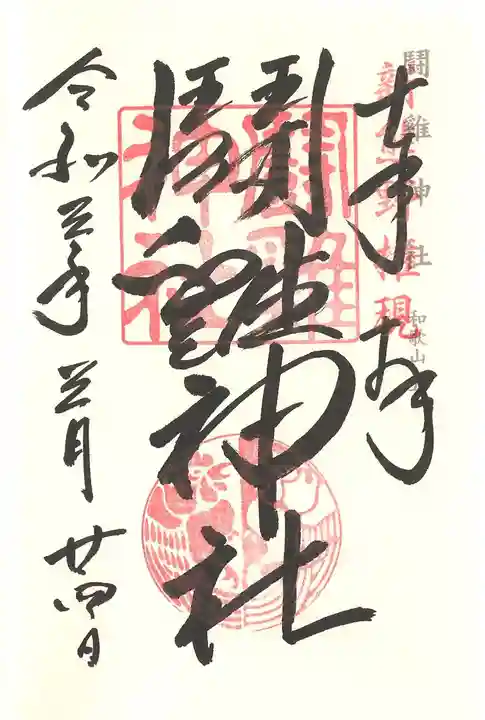 奉拝
闘雞神社
和歌山
新熊野権現
闘雞神社
闘雞神社
令和三年三月廿四日